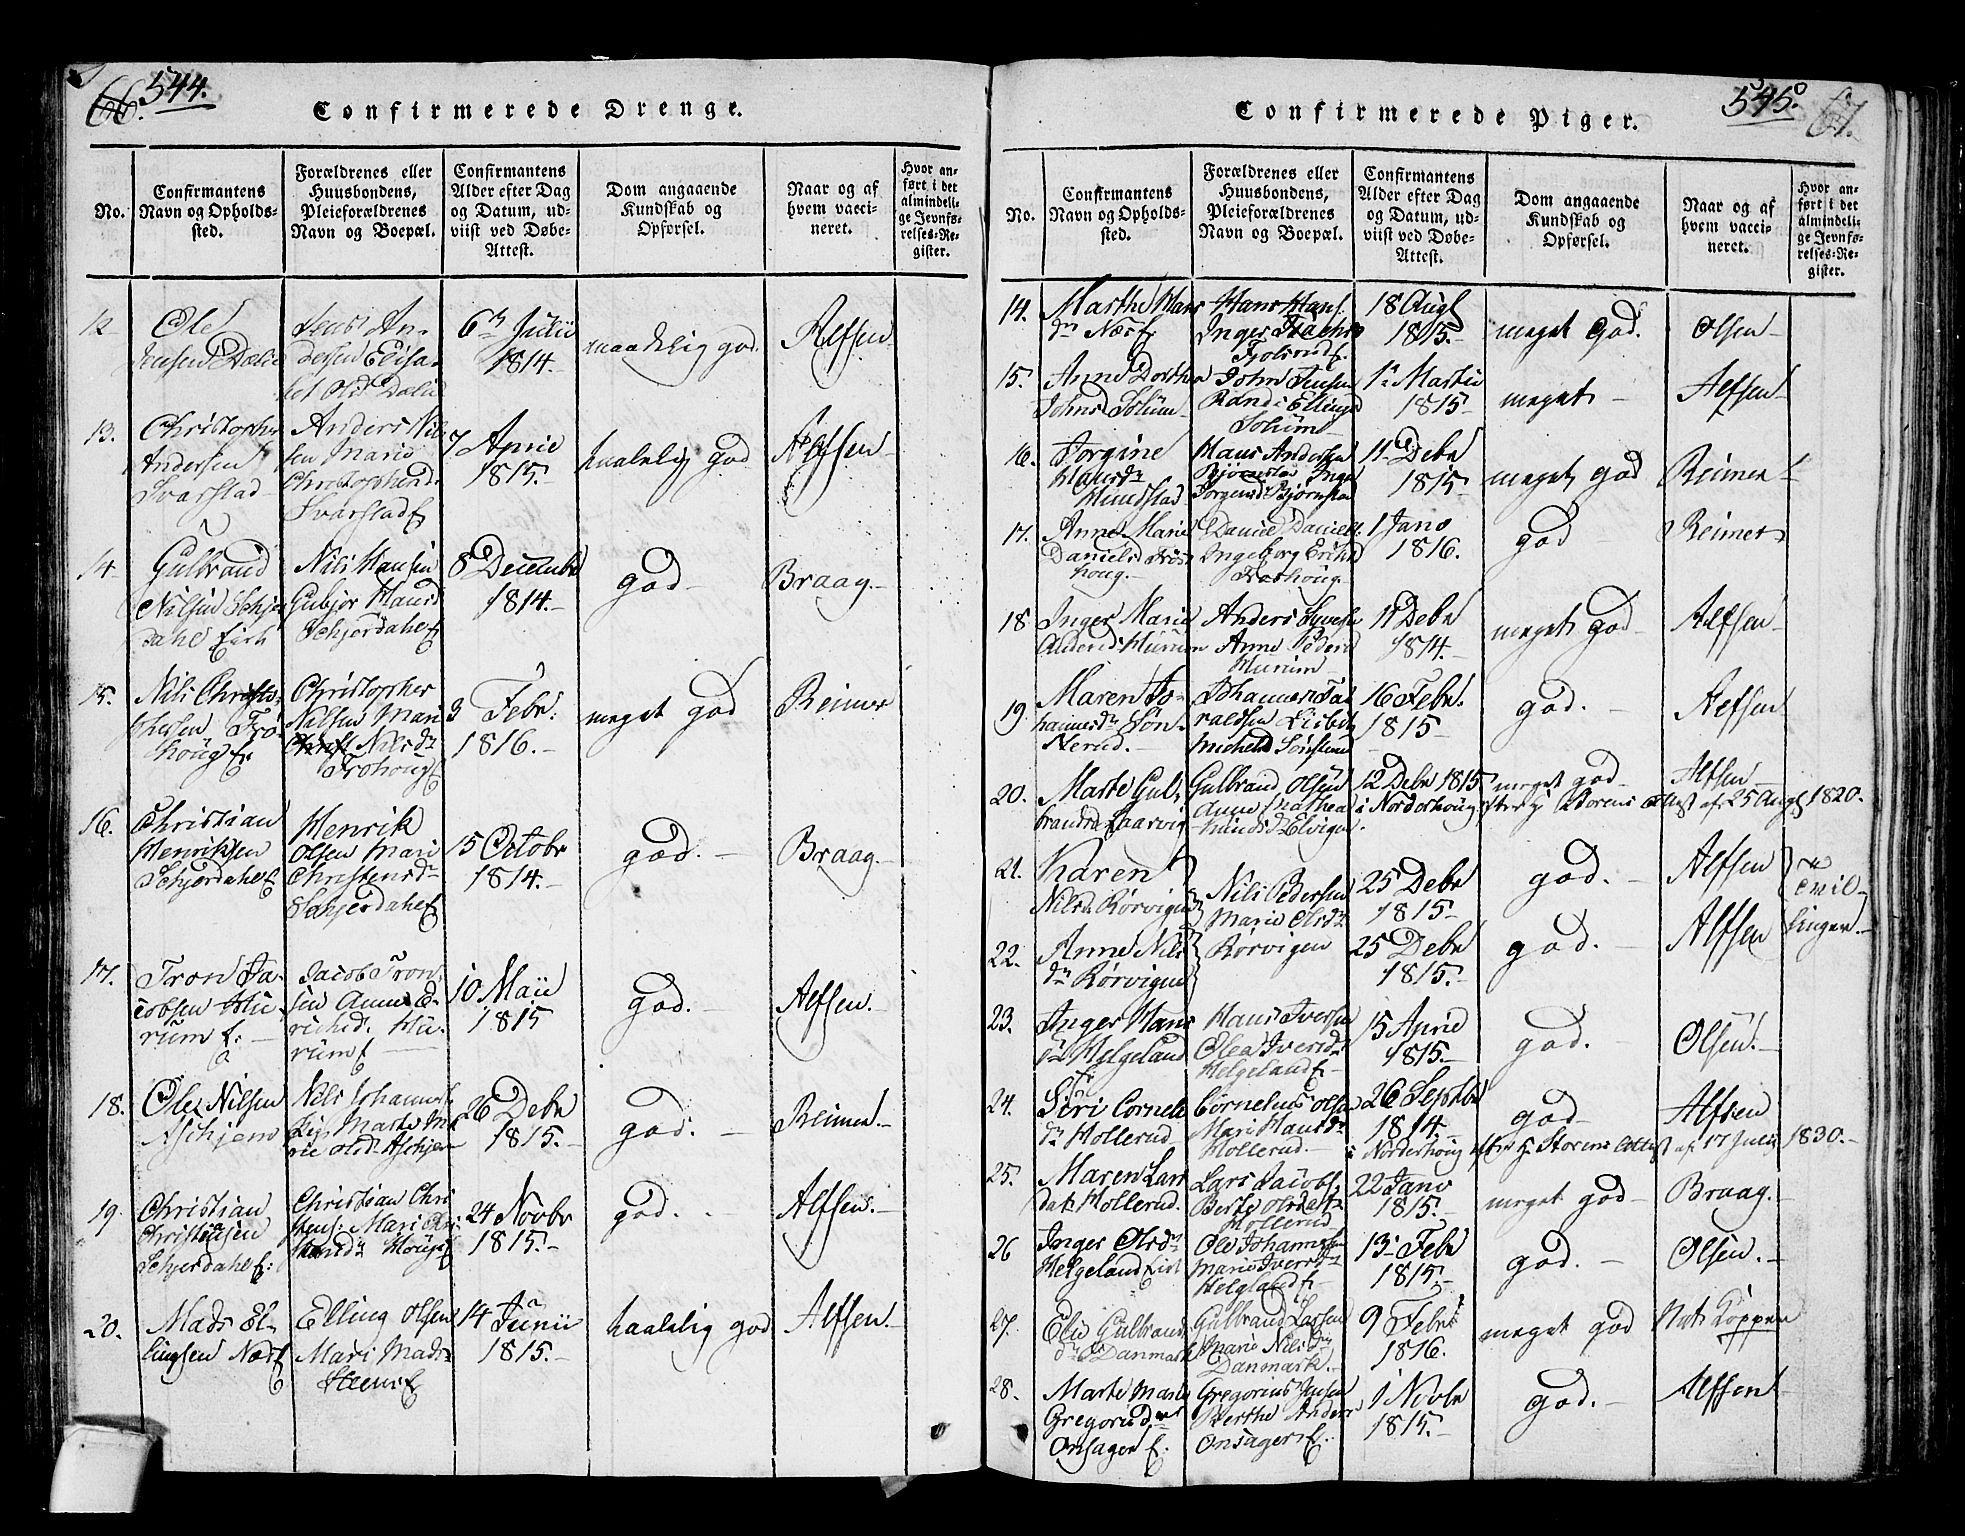 66. 544.
Confirmerede Drenge.
No.
Confirmantens
Navn og Opholds-
sted.
Forældrenes eller
Huusbondens,
Pleieforældrenes
Navn og Boepæl.
Confirmantens
Alder efter Dag
og Datum, ud-
viist ved Døbe-
Attest.
Dom angaaende
Kundskab og
Opførsel.
Naar og af
hvem vacci-
neret.
Hvor an-
ført i det
almindeli-
ge Jevnfø-
relses-Re-
gister.
12
Ole
Jensen Dælie
Jens An-
dersen Elisa-
bet Olsd Dælie
6 Julii
1814.
maadelig god.
Alfsen
13.
Christopher
Andersen
Svarstad
Anders Nil-
sen Marie
Christophersd.
Svarstad
7 April
1815.
god
Alfsen
14
Gulbrand
Nilsen Schjer
dahl
Nils Hansen
Gubjør Hansd
Schjerdahl
8 December
1814.
god
Braag.
15.
Nils Christo-
phersen Fro-
houg
Christopher
Nilsen Mari
Nilsdr
Frohoug
3 Febr:
1816.
meget god
Reimer
16.
Christian
Henriksen
Schjerdahl
Henrik
Olsen Mari
Christensdr
Schjerdahl
15 Octobr
1814.
god.
Braag.
17.
Tron Ja-
cobsen Hu-
rum
Jacob Tron
sen Anne E-
richsd. Hu-
rum
10 Maii
1815
god.
Alfsen.
18.
Ole Nilsen
Aschjem
Nils Johannes
Marte Ma
rie Olsd Aschjem
26 Debr
1815.
god.
Reimer.
19.
Christian
Christensen
Schjerdahl
Christian Chri
stens. Mari
24 Novbr
1815.
god.
Alfsen.
20.
Mads El-
lingsen Næs
Elling Olsen
Mari Mads
Steens
14 Junii
1815.
god
Alfsen.
545. 67.
Confirmerede Piger.
No.
Confirmantens
Navn og Opholds-
sted.
Forældrenes eller
Huusbondens,
Pleieforældrenes
Navn og Boepæl.
Confirmantens
Alder efter Dag
og Datum, ud-
viist ved Døbe-
Attest.
Dom angaaende
Kundskab og
Opførsel.
Naar og af
hvem vacci-
neret.
Hvor an-
ført i det
almindeli-
ge Jevnfø-
relses-Re-
gister.
14.
Marthe Hans
dr Næs
Hans Hans.
Inger
18 Aug
1815.
meget God.
Olsen
15.
Anne Dorthea
Johnsd Solum
John Jensen
Randi Ellingsd
Solum
1 Martii
1815
meget
Alfsen
16.
Jorgine
Hansdr
Mundstad
Hans Andersen
Bjørnstad Inger
Jorgensd Bjørnstad
11 Debr
1815
meget god
Reimer
17.
Anne Marie
Danielsd Fro
houg.
Daniel Daniels.
Ingeborg Eriksd
Frohoug
1 Janv
1816.
god
Reimer
18
Inger Marie
Andersd Hurum
Anders
Anne Peders
Hurum
11 Debr
1814.
meget god
Alfsen
19.
Maren Jo-
hannesdr Søn-
sterud.
Johannes Ta
raldsen Lisbet
Michelsd Sønsterud
16 Febr.
1815
god.
Alfsen
20.
Marte Gul-
brandsd Laarvig
Gulbrand Olsen
Anne Mathea
Knudsd Elvigen
12 Debr 1815
meget god
Alfsen
i Norderhoug efter Hr Storens Attest af 25 Aug 1820.
21.
Karen
Nilsd Rørvigen
Nils Pedersen
Marie Olsdr
Rørvigen
25 Debr
1815
god.
Alfsen
Tvil-
linger.
22.
Anne Nils
dr Rørvigen
25 Debr
1815.
god.
Alfsen
23.
Inger Hans
dr Helgeland
Hans Iversen
Olea Iversd
Helgeland
15 April
1815.
god.
Olsen.
24.
Siri Corneli
dr Hollerud
Cornelius Olsen
Mari Hansdr
Hollerud.
26 Septbr
1814.
god
Alfsen
i Norderhoug efter Hr Storens Attest af 17 Julij 1830.
25.
Maren Lars
datr Hollerud.
Lars Jacobs.
Berte Olsdatr
Hollerud
22 Janv
1815.
meget god
Braag.
26
Inger Olsdr
Helgeland
Ole Johannesen
Marie Iversdr
Helgeland
13 Febr
1815.
god.
Olsen.
27.
Elie Gulbrands
dr Danmark
Gulbrand Larsen
Marie Nilsdr
Danmark.
9 Febr
1816.
meget god
Køppen
28.
Marte Marie
Gregorisdatr
Onsager
Gregorius Jensen
Berthe Anders
Onsager
1 Novbr
1815.
god.
Alfsen